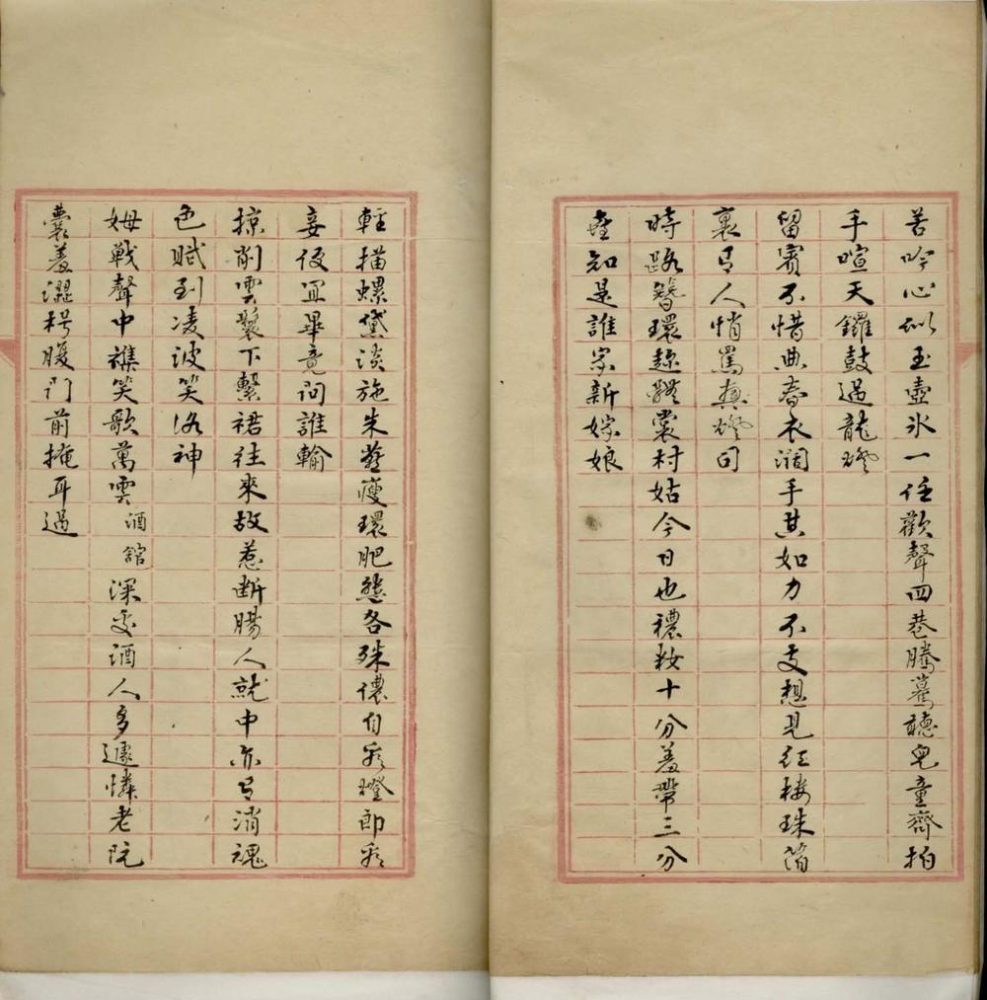 苦吟心似玉壺冰一任歡聲四巷騰驀聽兒童齊拍
手喧天鑼鼓過龍燈
留賓不惜典春衣濶手其如力不支想見紅樓珠箔
裏有人悄罵燈司
時路簪環趁體裳村姑今日也禯妝十分羞帶三分
知是誰家新嫁娘
輕描螺黛淡施朱燕瘦環肥態各殊儂自看燈郎看
妾便宜畢竟問誰輸
掠削雲鬟下繫裙往來故惹斷腸人就中亦有消魂
色賦到凌波笑洛神
姆戰聲中襍笑歌萬雲酒館深處酒人多遽憐老阮
囊羞澀枵腹門前掩耳過